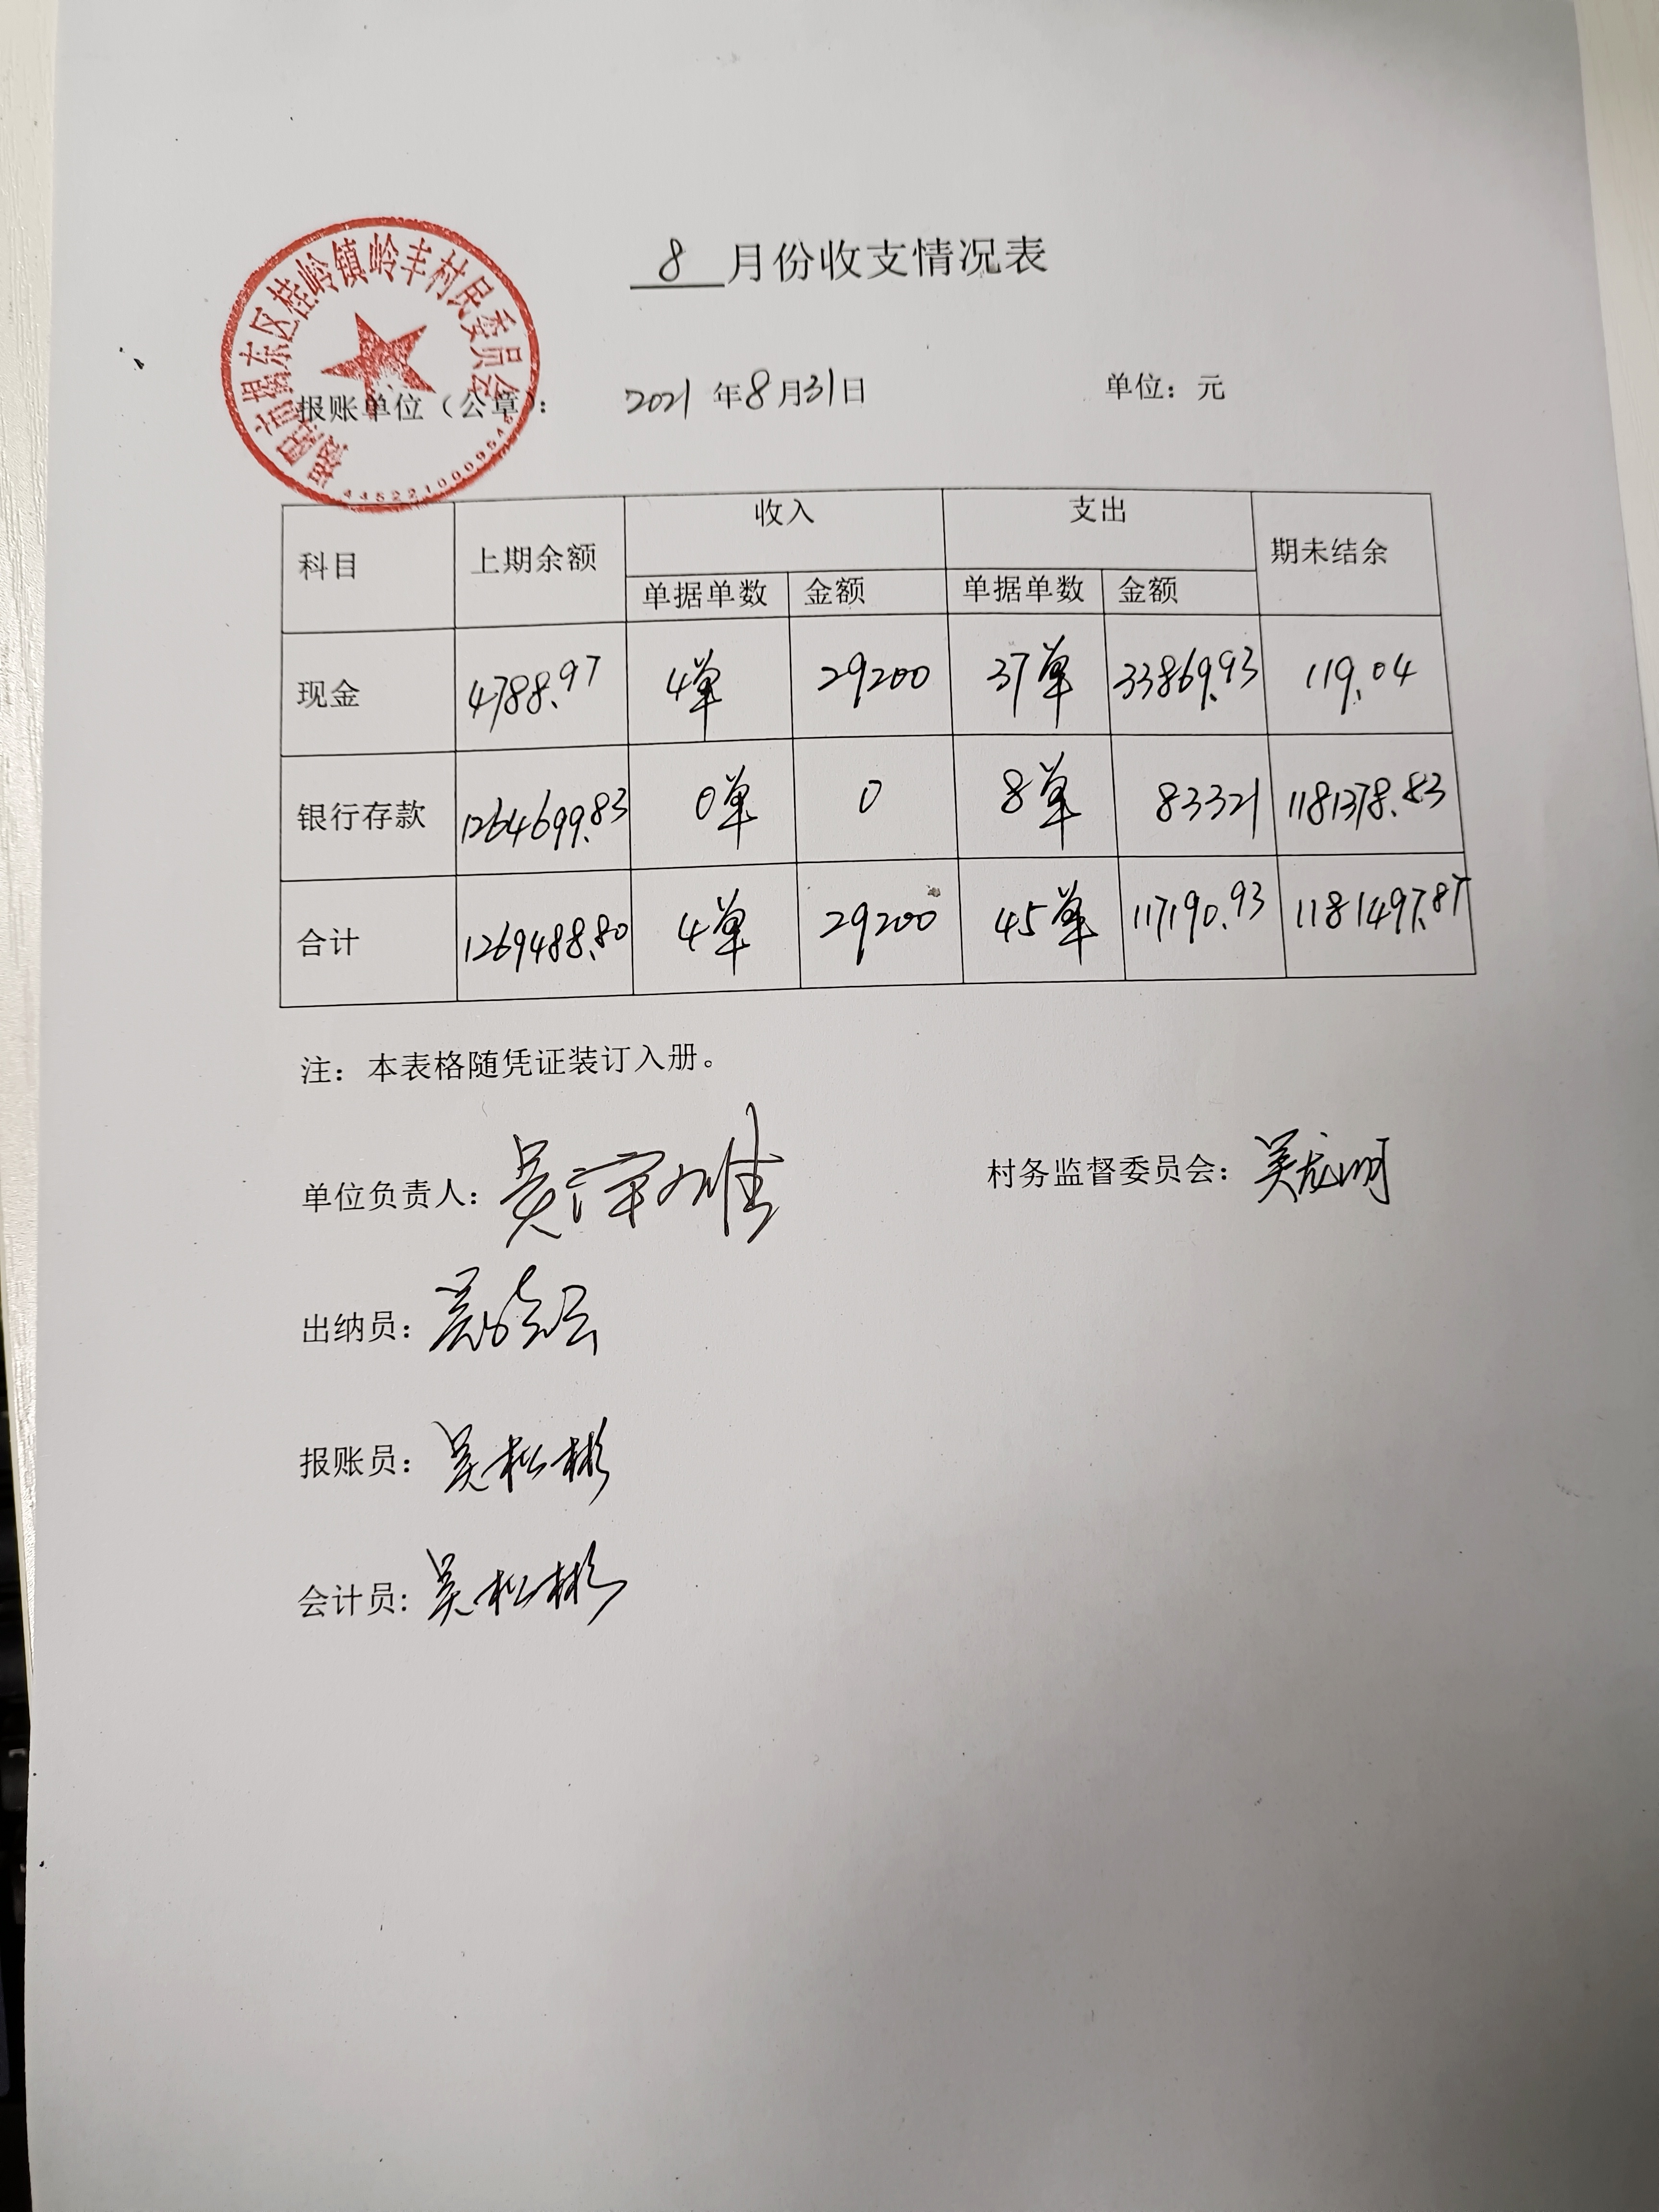 8 月份收支情况表
揭阳市揭东区桂岭镇岭丰村民委员会
报账单位（公章）： 2021 年 8 月 31 日 单位：元
科目 上期余额 收入 支出 期未结余
单据单数 金额 单据单数 金额
现金 4788.97 4单 29200 37单 33869.93 119.04
银行存款 1264699.83 0单 0 8单 83321 1181378.83
合计 1269488.80 4单 29200 45单 117190.93 1181497.87
注：本表格随凭证装订入册。
单位负责人： 吴 村务监督委员会： 吴龙明
出纳员： 吴
报账员： 吴松彬
会计员： 吴松彬